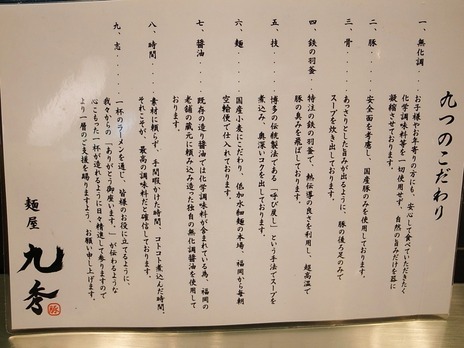 九つのこだわり
一、無化調・・・お子様やお年寄りの方にも、安心して食べていただきたく
化学調味料等を一切使用せず、自然の旨みだけを基に
凝縮させております。
二、豚・・・・安全面を考慮し、国産豚のみを使用しております。
三、骨・・・・あっさりとした旨みが出るように、豚の後ろ足のみで
スープを炊き出しております。
四、鉄の羽釜・・特注の鉄の羽釜で、熱伝導の良さを利用し、超高温で
豚の臭みを飛ばしております。
五、技・・・・博多の伝統製法である「呼び戻し」という手法でスープを
煮込み、奥深いコクを出しております。
六、麺・・・・国産小麦にこだわり、低加水細麺の本場、福岡から毎朝
空輸便で仕入れております。
七、醤油・・・既存の造り醤油では化学調味料が含まれている為、福岡の
老舗の蔵元に頼み込み造った独自の無化調醤油を使用して
おります。
八、時間・・・素材に頼らず、手間暇かけた時間、コトコト煮込んだ時間、
それこそが、最高の調味料だと確信しております。
九、志・・・・一杯のラーメンを通じ、皆様のお役に立てるように、
我々からの「ありがとう御座います」が伝わるような
心こもった一杯が造れるように日々精進して参りますので
より一層のご支援を賜りますよう、お願い申し上げます。
麺屋 九秀